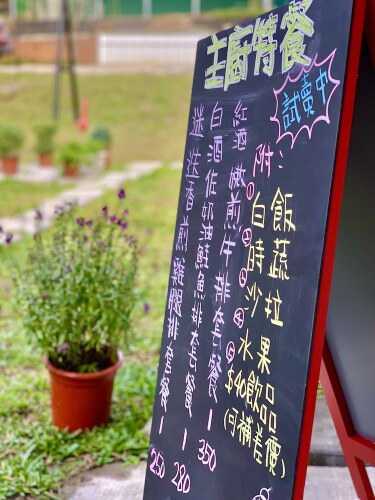 主厨特餐
試賣中
附：
①白飯
②時蔬
③沙拉
④水果
⑤$40飲品
(可補差價)
紅酒嫩煎牛排套餐—350
白酒佐奶油鮭魚排套餐—280
迷迭香煎雞腿排套餐—250